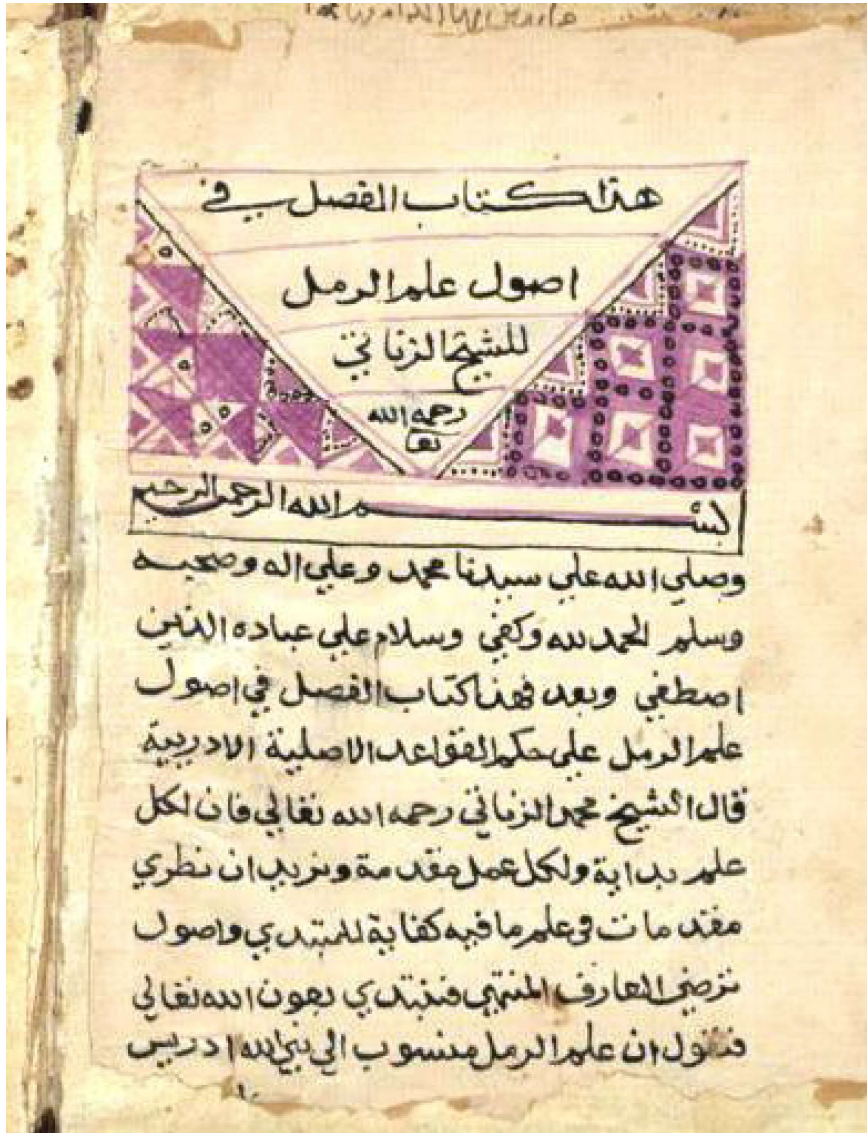 هذا كتاب المفصل في
اصول علم الرمل
للشيخ الزناتي
رحمه الله
تعا
بسم الله الرحمن الرحيم
وصلي الله علي سيدنا محمد وعلي اله وصحبه
وسلم الحمد لله وكفي وسلام علي عباده الذين
اصطفي وبعد فهذا كتاب الفصل في اصول
علم الرمل علي حكم القواعد الاصلية الادريية
قال الشيخ محمد الزناتي رحمه الله تعالي فان لكل
علم بداية ولكل عمل مقدمة ونريد ان نطري
مقدمات في علم ما فيه كفاية للمبتدي واصول
ترضي العارف المنتهي فنبتدي بعون الله تعالي
فنقول ان علم الرمل منسوب الي نبي الله ادريس